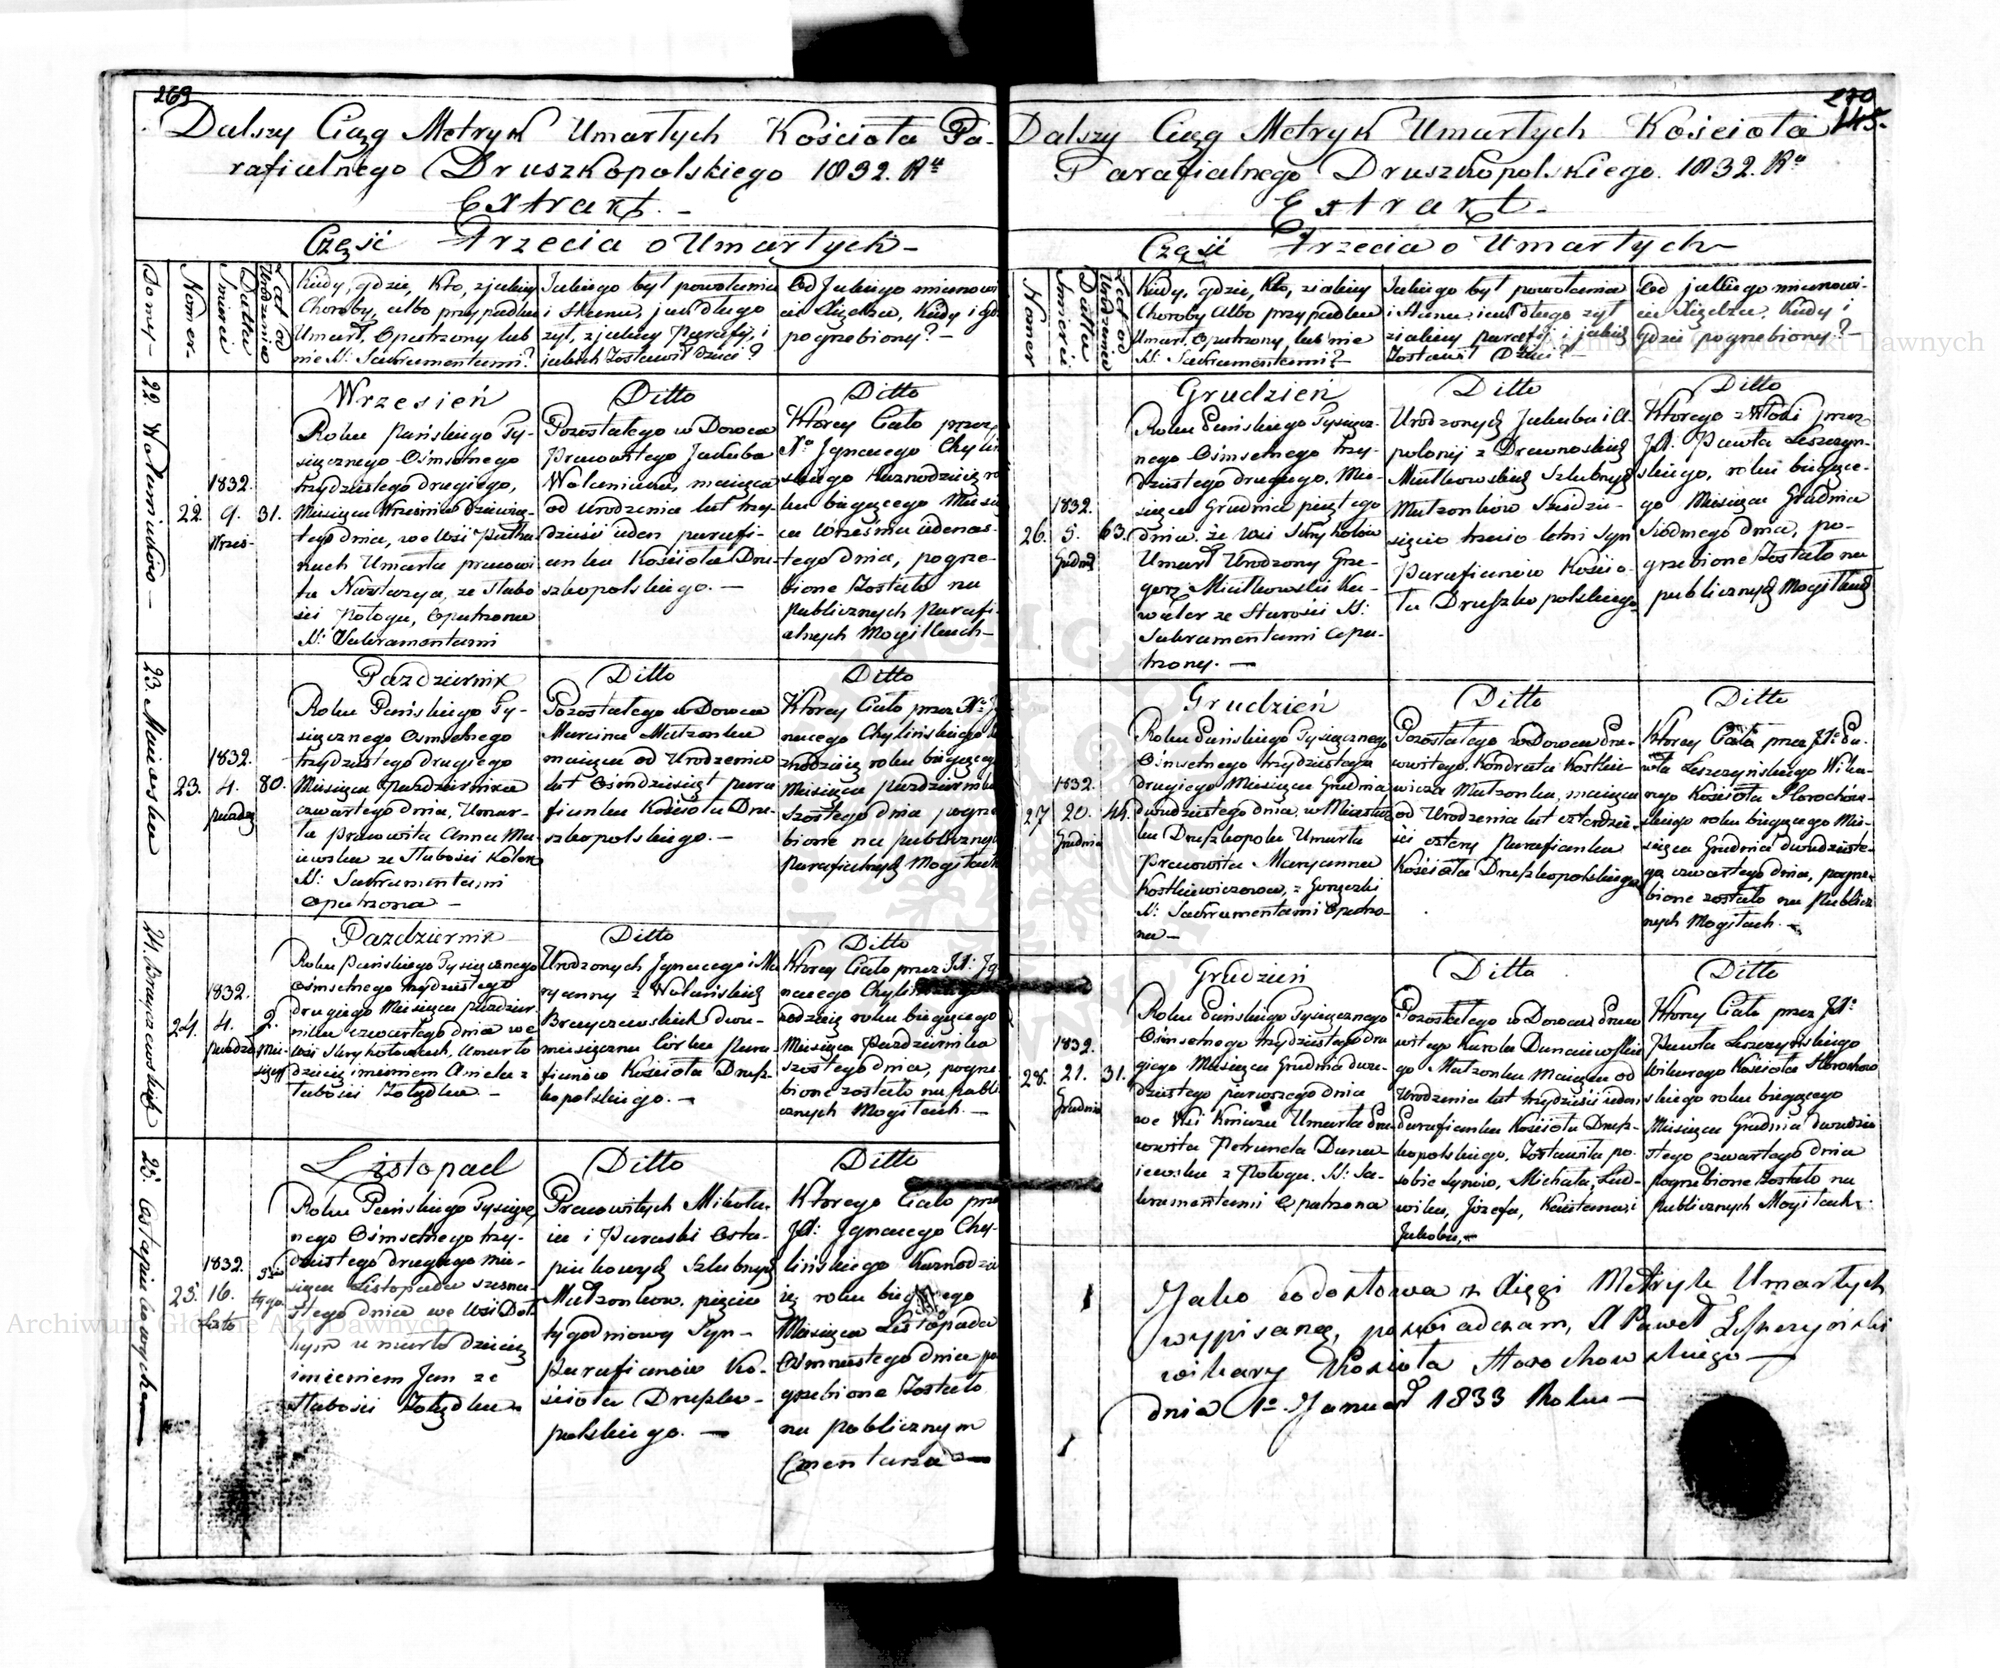 269
Dalszy Ciąg Metryk Umarłych Kościoła Pa-
rafialnego Druszkopolskiego 1832. Ru
Extrakt. -
Część Trzecia o Umarłych -
Nomer
Datta Śmierci
Lat od Urodzenia
Kiedy, gdzie, kto, z jakiey
Choroby, albo przypadku
Umarł, Opatrzony lub
nie SS: Sakramentami?
Jakiego był powołania
i Stanu, jak długo
żył, z jakiey Parafii, i
jakich zostawił dzieci?
Od Jakiego mianowi
cie Xiędza, Kiedy i gd
pogrzebiony? -
22. Waluniukowa -
22.
1832.
9.
Wrześ-
31.
Wrzesień
Roku Pańskiego Ty-
siącznego Ośmsetnego
trzydziestego drugiego,
Miesiąca Września dziewią-
tego dnia, we Wsi
Umarła pracowi
ta Nastazya, ze słabo
ści Połogu, Opatrzona
SS: Sakramentami
Ditto
Pozostałego w Dowca
Pracowitego Jakuba
maiąca
od Urodzenia lat trzy-
dzieści ieden parafi-
anka Kościoła Dru-
szkopolskiego. -
Ditto
Którey Ciało przez
X° Ignacego Chylin
skiego Kaznodzieię ro
ku bieżącego Miesią
ca Września iedenas-
tego dnia, pogrze-
bione zostało na
publicznych parafi-
alnych Mogiłkach -
23. Maiewska
23.
1832.
4.
80.
Pazdziernik
Roku Pańskiego Ty-
siącznego Ośmsetnego
trzydziestego drugiego
Miesiąca Pazdziernika
czwartego dnia, Umar-
ła pracowita Anna Ma-
iewska ze słabości
SS: Sakramentami
Opatrzona -
Ditto
Pozostałego w Dowca
Marcina Małżonka
maiąca od Urodzenia
lat Ośmdziesiąt para
fianka Kościoła Dru-
szkopolskiego. -
Ditto
Którey Ciało przez X° Ig
nacego Chylińskiego Ka
znodzieię roku bieżącego
Miesiąca Pazdziernika
szóstego dnia pogrze
bione na publicznych
Parafialnych Mogiłkach
24.
24.
1832.
4.
2.
Pazdziernik
Roku Pańskiego Tysiącznego
Ośmsetnego trzydziestego
drugiego Miesiąca Pazdzier-
nika czwartego dnia we
Wsi Umarło
dziecię imieniem Aniela z
słabości Żołądka -
Ditto
Urodzonych Ignacego i Ma
ryanny z
dwu-
miesięczna Córka Para
fianów Kościoła Drusz-
kopolskiego. -
Ditto
Którey Ciało przez Jx: Ig
nacego Chylińskiego
roku bieżącego
Miesiąca Pazdziernika
szóstego dnia, pogrze
bione zostało na publi
cznych Mogiłkach. -
25. Ostapiukowych -
25.
1832.
16.
Listopad
Roku Pańskiego Tysiącz
nego Ośmsetnego trzy-
dziestego drugiego mie-
siąca Listopada szesna-
stego dnia we Wsi
umarło dziecię
imieniem Jan ze
słabości Żołądka -
Ditto
Pracowitych Mikoła-
ia i Paraski Osta-
piukowych Szlubnych
Małżonków, pięcio
tygodniowy Syn -
Parafianów Ko-
ścioła Druszko-
polskiego. -
Ditto
Którego Ciało prze
Jx: Ignacego Chy-
lińskiego Kaznodzie
ię roku bieżącego
Miesiąca Listopada
Ośmnastego dnia po
grzebione zostało
na publicznym
Cmentarzu -
270
145.
Dalszy Ciąg Metryk Umarłych Kościoła
Parafialnego Druszkopolskiego. 1832. Ru
Extrakt -
Część Trzecia o Umarłych -
Nomer
Datta Śmierci
Lat od Urodzenia
Kiedy, gdzie, kto, z iakiey
Choroby Albo przypadku
Umarł, Opatrzony, lub nie
SS: Sakramentami? -
Jakiego był powołania
i Stanu, iak długo żył
z iakiey parafii, i jakich
zostawił Dzieci? -
Od jakiego mianowi-
cie Xiędza, Kiedy i
gdzie pogrzebiony? -
26.
1832.
5.
63.
Grudzień
Roku Pańskiego Tysiącz-
nego Ośmsetnego trzy-
dziestego drugiego, Mie-
siąca Grudnia piątego
dnia, we Wsi
Umarł Urodzony Grze-
gorz Miałkowski Ka-
waler ze Starości SS:
Sakramentami Opa-
trzony. -
Ditto
Urodzonych Jakuba i A-
polonii z
Szlubnych
Małżonków Sześdzie-
sięcio trzecio letni Syn
Parafianów Kościo-
ła Druszkopolskiego
Ditto
Którego zwłoki przez
Jx: Pawła Leszczyn-
skiego, roku bieżące-
go Miesiąca Grudnia
siódmego dnia, po-
grzebione zostało na
publicznych Mogiłkach
27
1832.
20.
Grudnia
44.
Grudzień
Roku Pańskiego Tysiącznego
Ośmsetnego trzydziestego
drugiego Miesiąca Grudnia
dwudziestego dnia, w Miastecz
ku Druszkopolu Umarła
Pracowita Maryanna
Kostkiewiczowa, z Gorączki
SS: Sakramentami Opatrzo-
na -
Ditto
Pozostałego w Dowca Pra-
cowitego Kondrata Kostkie-
wicza Małżonka, maiąca
od Urodzenia lat czterdzie-
ści cztery Parafianka
Kościoła Druszkopolskiego
Ditto
Którey Ciało przez Jx: Pa-
wła Leszczyńskiego Wika-
rego Kościoła Horochow-
skiego roku bieżącego Mie-
siąca Grudnia dwudzieste-
go czwartego dnia, pogrze-
bione zostało na Publicz
nych Mogiłkach. -
28.
1832.
21.
Grudnia
31.
Grudzień
Roku Pańskiego Tysiącznego
Ośmsetnego trzydziestego dru
giego Miesiąca Grudnia dwu-
dziestego pierwszego dnia
we Wsi Umarła Pra
cowita Petrunela Duna
iewska z Połogu, SS: Sa-
kramentami Opatrzona
Ditto
Pozostałego w Dowca Praco
witego Karola Dunaiewskie
go Małżonka Maiąca od
Urodzenia lat trzydzieści ieden
Parafianka Kościoła Drusz-
kopolskiego, Zostawiła po
sobie Synów, Michała, Lud-
wika, Józefa, Kaietana, i
Jakóba, -
Ditto
Którey Ciało przez Jx:
Pawła Leszczyńskiego
Wikarego Kościoła Horochow
skiego roku bieżącego
Miesiąca Grudnia dwudzie
stego czwartego dnia
pogrzebione zostało na
publicznych Mogiłkach.
Jako co do słowa z Xięgi Metryk Umarłych
wypisaną, poświadczam, X Paweł Leszczyński
wikary Kościoła Horochowskiego -
dnia 1° Januar 1833 Roku -
Archiwum Główne Akt Dawnych
Archiwum Główne Akt Dawnych